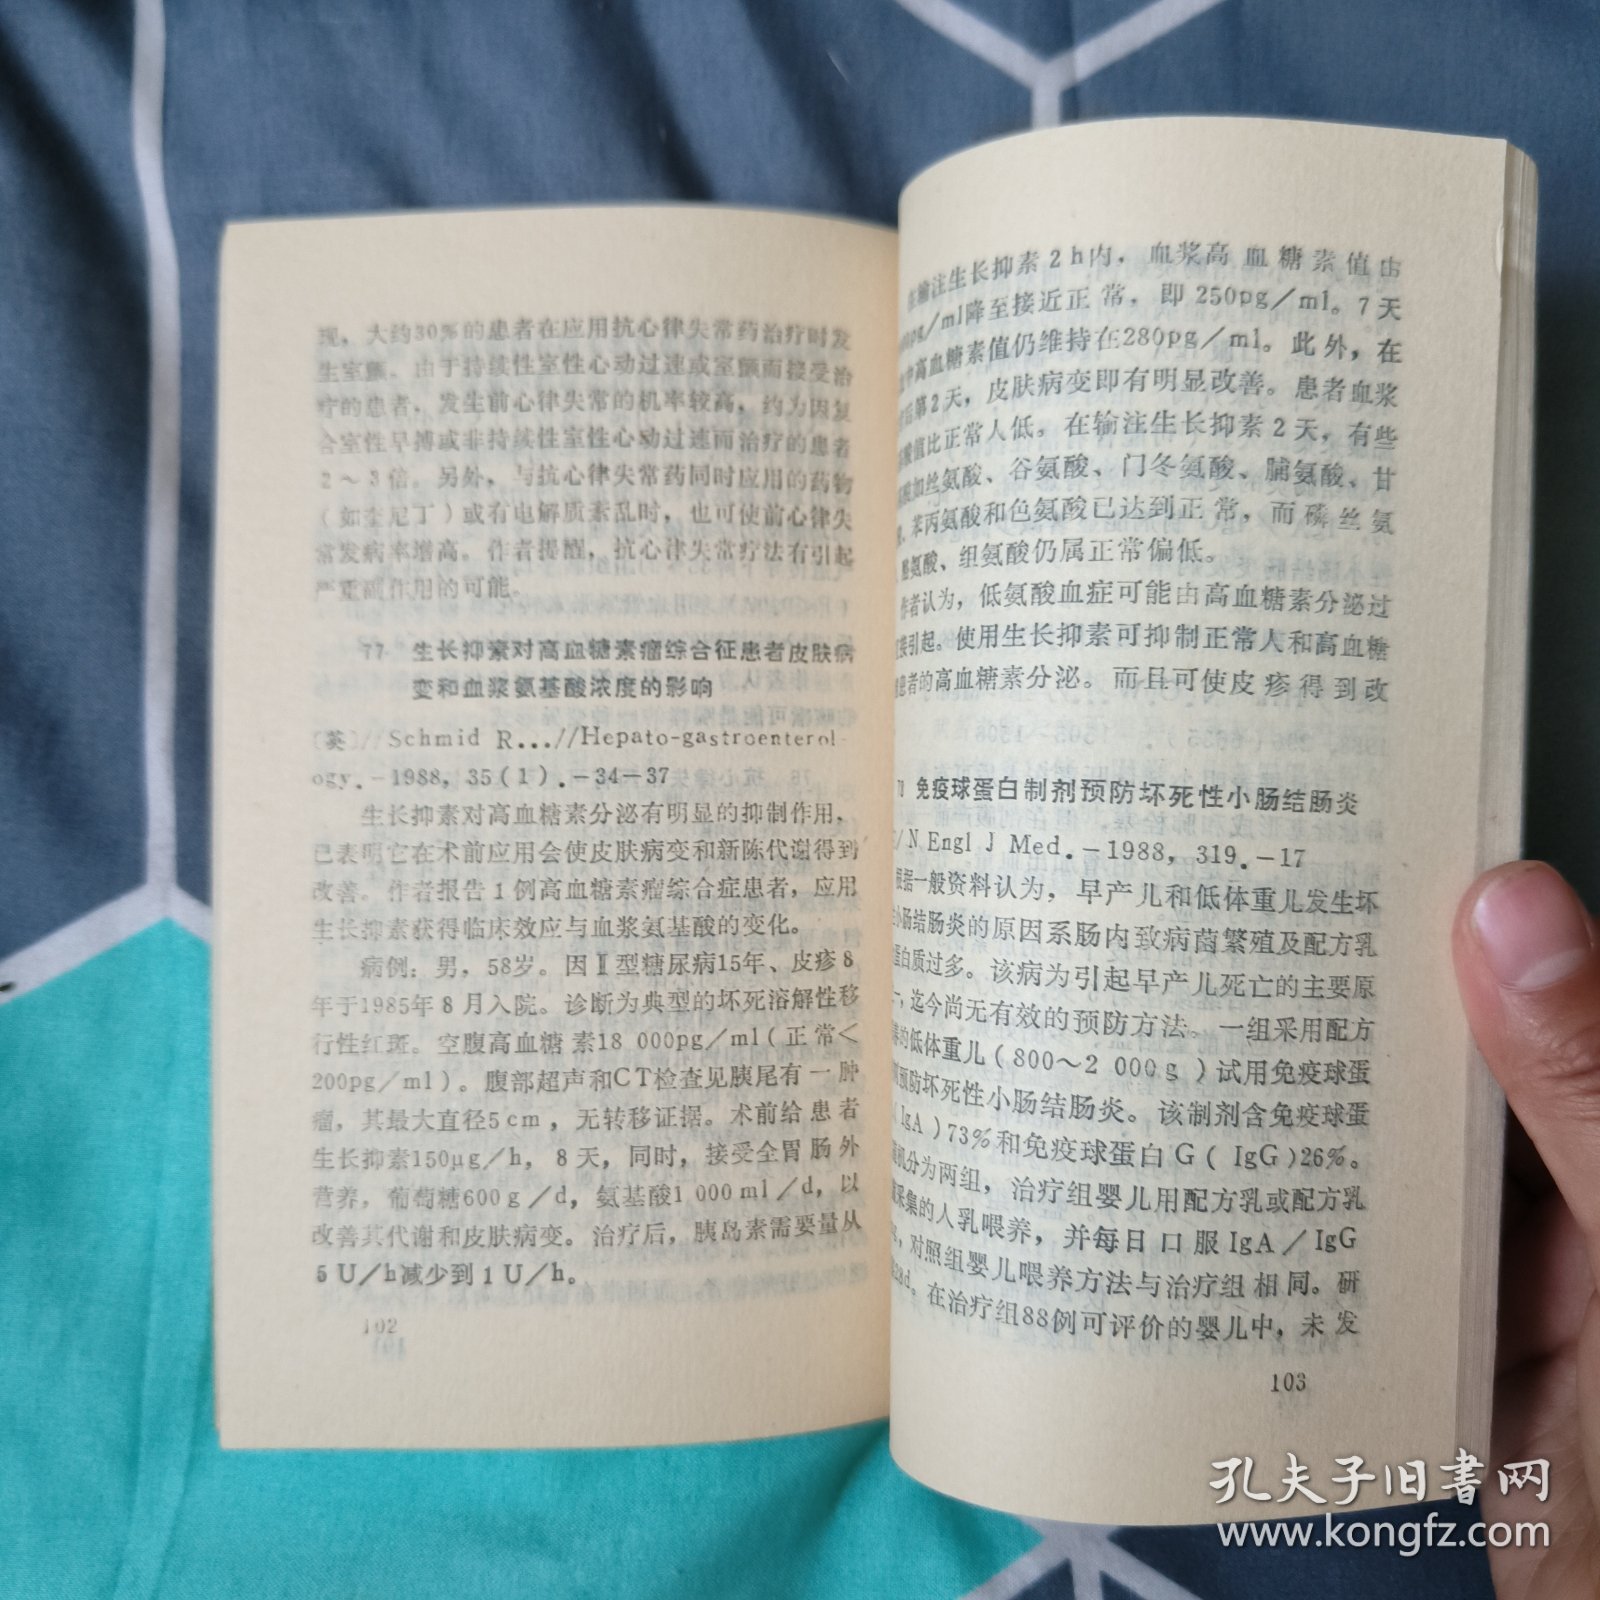 现，大约30%的患者在应用抗心律失常药治疗时发
生室颤。由于持续性室性心动过速或室颤而接受治
疗的患者，发生前心律失常的机率较高，约为因复
合室性早搏或非持续性室性心动过速而治疗的患者
2～3倍。另外，与抗心律失常药同时应用的药物
（如奎尼丁）或有电解质紊乱时，也可使前心律失
常发病率增高。作者提醒，抗心律失常疗法有引起
严重副作用的可能。
77 生长抑素对高血糖素瘤综合征患者皮肤病
变和血浆氨基酸浓度的影响
〔英〕//Schmid R…//Hepato-gastroenterol-
ogy.－1988, 35(1).－34－37
生长抑素对高血糖素分泌有明显的抑制作用，
已表明它在术前应用会使皮肤病变和新陈代谢得到
改善。作者报告1例高血糖素瘤综合症患者，应用
生长抑素获得临床效应与血浆氨基酸的变化。
病例：男，58岁。因Ⅱ型糖尿病15年、皮疹8
年于1985年8月入院。诊断为典型的坏死溶解性移
行性红斑。空腹高血糖素18 000pg／ml（正常＜
200pg／ml）。腹部超声和CT检查见胰尾有一肿
瘤，其最大直径5cm，无转移证据。术前给患者
生长抑素150μg／h，8天，同时，接受全胃肠外
营养，葡萄糖600g／d，氨基酸1 000ml／d，以
改善其代谢和皮肤病变。治疗后，胰岛素需要量从
5U／h减少到1U／h。
102
在输注生长抑素2h内，血浆高血糖素值由
pg／ml降至接近正常，即250pg／ml。7天
中高血糖素值仍维持在280pg／ml。此外，在
后第2天，皮肤病变即有明显改善。患者血浆
酸值比正常人低。在输注生长抑素2天，有些
酸如丝氨酸、谷氨酸、门冬氨酸、脯氨酸、甘
、苯丙氨酸和色氨酸已达到正常，而磷丝氨
氨酸、组氨酸仍属正常偏低。
作者认为，低氨酸血症可能由高血糖素分泌过
接引起。使用生长抑素可抑制正常人和高血糖
患者的高血糖素分泌。而且可使皮疹得到改
免疫球蛋白制剂预防坏死性小肠结肠炎
/N Engl J Med.－1988, 319.－17
根据一般资料认为，早产儿和低体重儿发生坏
小肠结肠炎的原因系肠内致病菌繁殖及配方乳
蛋白质过多。该病为引起早产儿死亡的主要原
一，迄今尚无有效的预防方法。一组采用配方
的低体重儿（800～2 000g）试用免疫球蛋
预防坏死性小肠结肠炎。该制剂含免疫球蛋
IgA）73%和免疫球蛋白G（IgG）26%。
机分为两组，治疗组婴儿用配方乳或配方乳
采集的人乳喂养，并每日口服IgA／IgG
，对照组婴儿喂养方法与治疗组相同。研
28d。在治疗组88例可评价的婴儿中，未发
103
孔夫子旧书网
www.kongfz.com